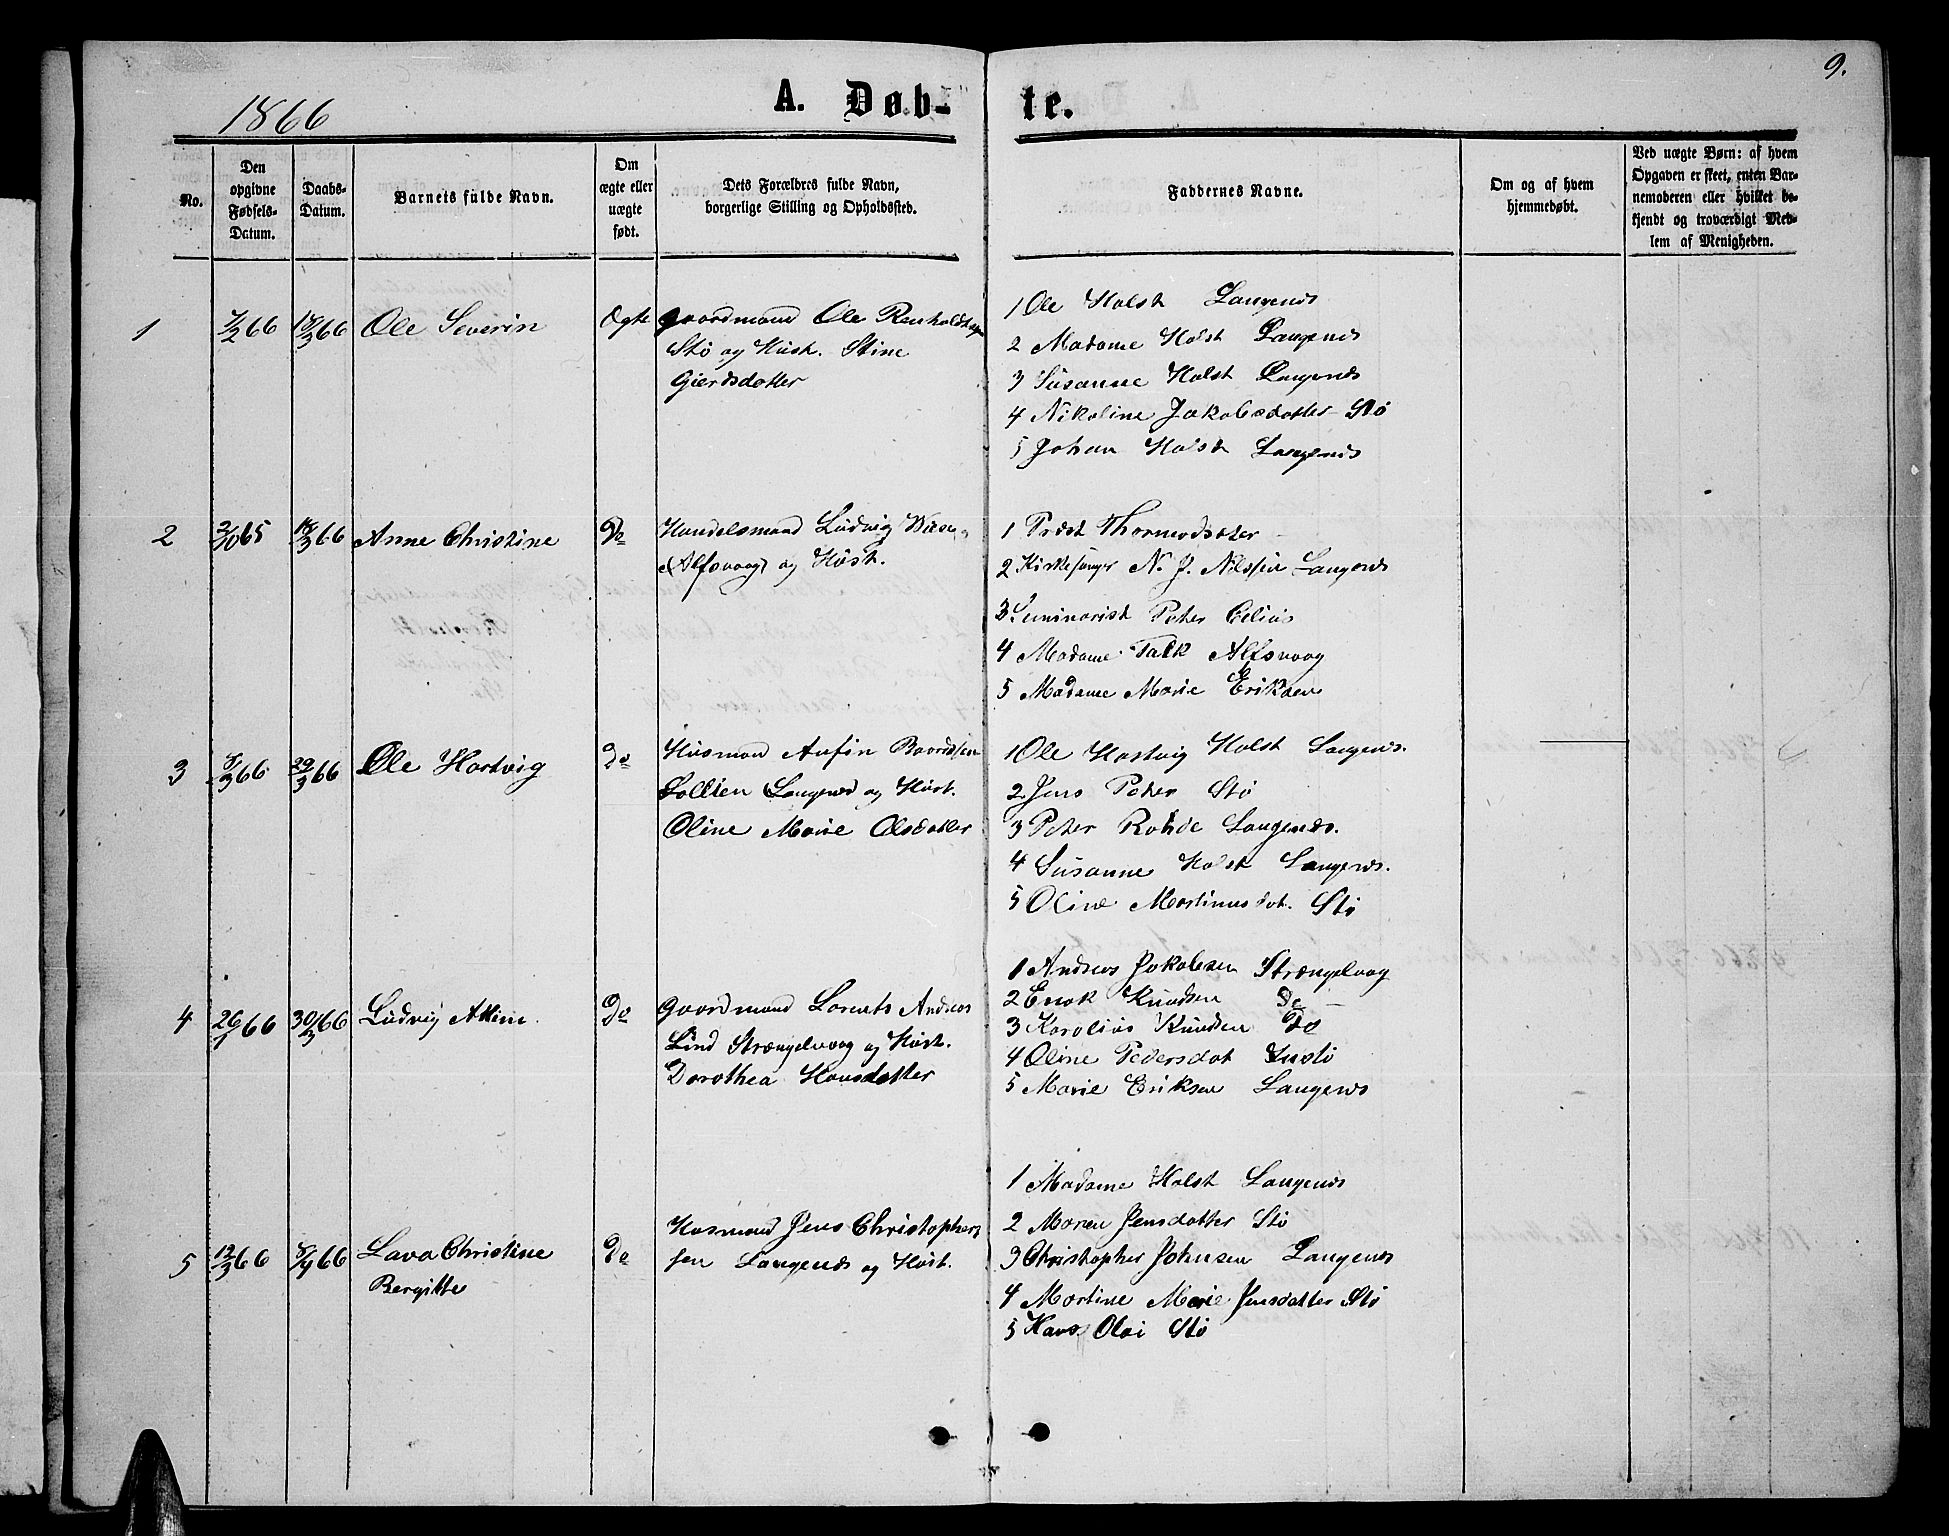 9.
1866
A. Døb-
te.
No.
Den opgivne Fødsels-Datum.
Daabs-Datum.
Barnets fulde Navn.
Om ægte eller uægte født.
Dets Forældres fulde Navn, borgerlige Stilling og Opholdssted.
Faddernes Navne.
Om og af hvem hjemmedøbt.
Ved uægte Børn: af hvem Opgaven er skeet, enten Barnemoderen eller hvilket bekjendt og troværdigt Medlem af Menigheden.
1
7/2 66
18/3 66
Ole Severin
Ægte
Gaardmand Ole
Stø og Hust. Stine
Gierdsdatter
1 Ole Holst Langenes
2 Madame Holst Langenes
3 Susanne Holst Langenes
4 Nikoline Jakobsdatter Stø
5 Johan Holst Langenes
2
2/10 65
18/3 66
Anne Christine
Do
Handelsmand Ludvig
Alfsvaag og Hust.
1 Præst Thormodsæter
2 Kirkesanger N. J. Nilssen Langenes
3 Seminarist Peter Elias
4 Madame Falk Alfsvaag
5 Madame Marie Eriksen
3
8/3 66
29/3 66
Ole Hartvig
Do
Husmand Anfin Baardsen
Sollien Langenes og Hust.
Oline Marie Olsdatter
1 Ole Hartvig Holst Langenes.
2 Jens Peter Stø
3 Peter Rohde Langenes.
4 Susanne Holst Langenes.
5 Oline Martinusdot. Stø
4
26/1 66
30/3 66
Ludvig
Do
Gaardmand Lorents Andreas
Lind Strængelvaag og Hust.
Dorothea Hansdatter
1 Andreas Jakobsen Strængelvaag
2 Enok Knudsen Do
3 Karolius Knudsen Do
4 Oline Pedersdot
5 Marie Eriksen Langenes
5
12/3 66
8/4 66
Lava Christine
Bergitte
Do
Husmand Jens Christopher-
sen Langenes og Hust.
1 Madame Holst Langenes
2 Maren Jensdatter Stø
3 Christopher Johnsen Langenes
4 Martine Marie Jensdatter Stø
5 Hans Olai Stø